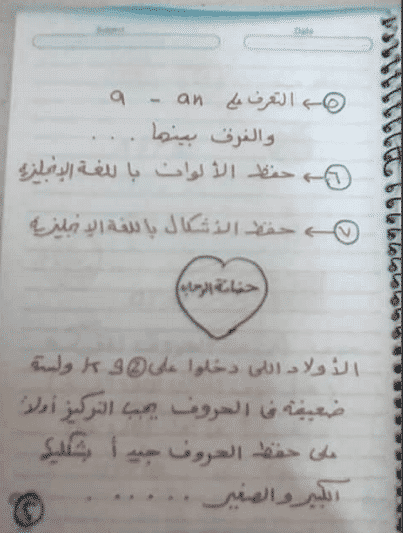 Subject
Date
٥ ← التعرف على a - an
والفرق بينهما . . .
٦ ← حفظ الألوان باللغة الإنجليزية
٧ ← حفظ الأشكال باللغة الإنجليزية
حضانة الرحاب
الأولاد اللى دخلوا على ② و k ولسة
ضعيفة فى الحروف يجب التركيز أولاً
على حفظ الحروف جيد أ بشكليها
الكبير والصغير . . . . . .
٢